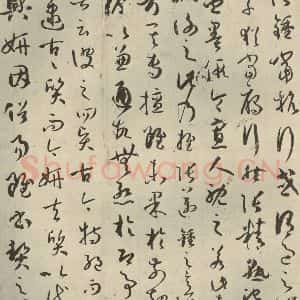 鍾當抗行或謂過之
猶當雁行然張精熟池
盡墨假令寡人耽之若此
謝之此乃推張邁鍾之意
考其專擅雖未果於前規
摭以兼通故無慚於即事
云彼之四賢古今特絕而
逮古古質而今妍夫質以代
興妍因俗易雖書契之
Shufawang.CN